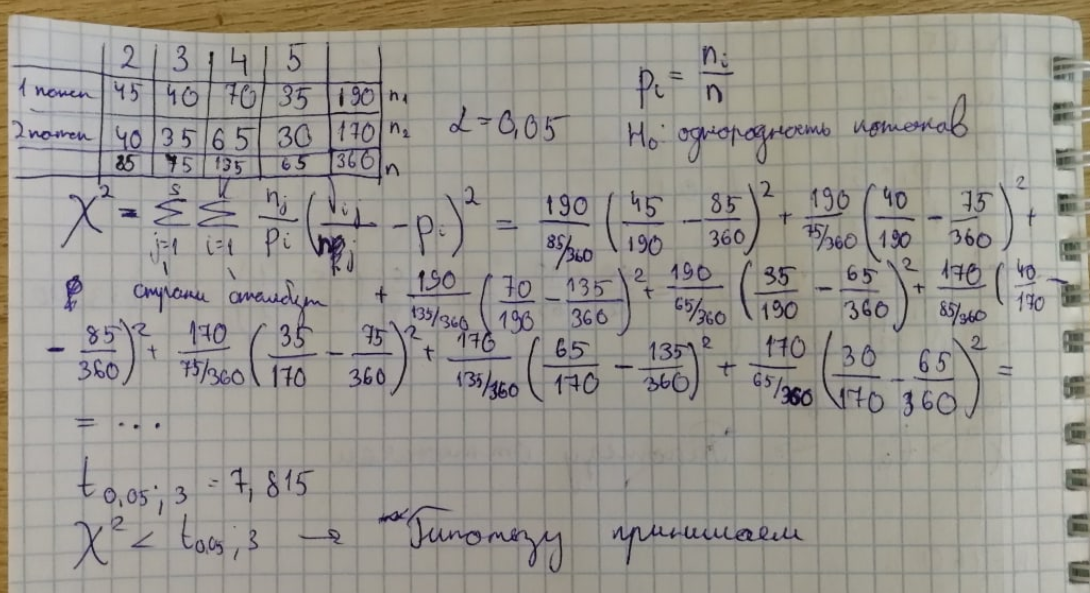 2 3 4 5
1 поток 45 40 70 35 190 n₁
2 поток 40 35 65 30 170 n₂
85 75 135 65 360 n
α = 0,05
pᵢ = nᵢ/n
H₀: однородность потоков
χ² = Σ_{j=1}^{s} Σ_{i=1} nⱼ/pᵢ (νᵢⱼ/nⱼ − pᵢ)² = 190/(85/360) (45/190 − 85/360)² + 190/(75/360) (40/190 − 75/360)² +
+ 190/(135/360) (70/190 − 135/360)² + 190/(65/360) (35/190 − 65/360)² + 170/(85/360) (40/170 −
− 85/360)² + 170/(75/360) (35/170 − 75/360)² + 170/(135/360) (65/170 − 135/360)² + 170/(65/360) (30/170 − 65/360)² =
= ...
t₀,₀₅;₃ = 7,815
χ² < t₀,₀₅;₃ → Гипотезу принимаем